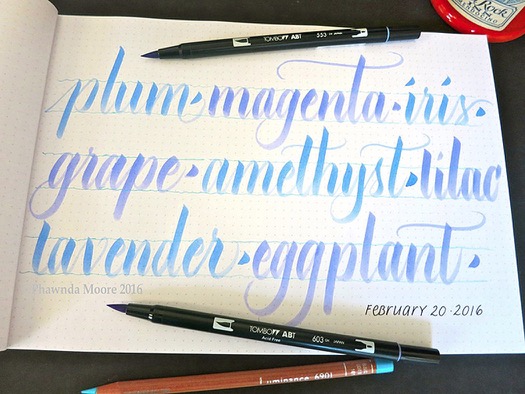 TOMBOW ABT 553 JAPAN
Rock
plum · magenta · iris ·
grape · amethyst · lilac
lavender · eggplant ·
Shawnda Moore 2016
FEBRUARY 20 · 2016
TOMBOW ABT 603 JAPAN
Acid Free
Luminance 6901